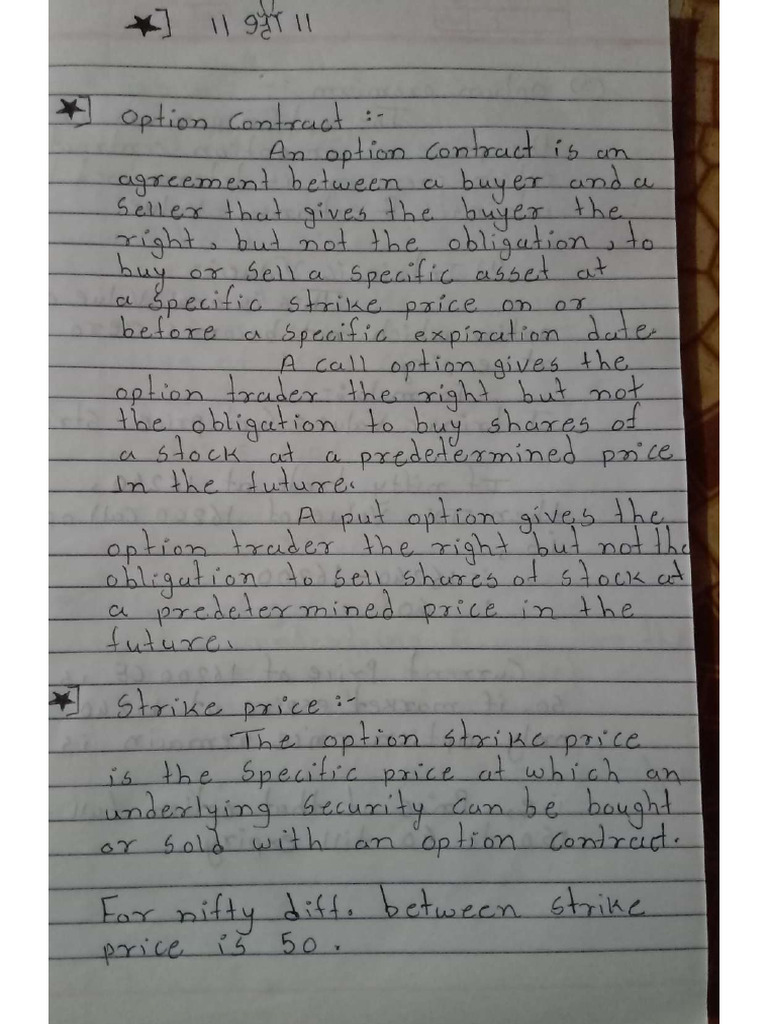 ★] ॥ श्री ॥
★] Option Contract :-
An option contract is an
agreement between a buyer and a
seller that gives the buyer the
right, but not the obligation, to
buy or sell a specific asset at
a specific strike price on or
before a specific expiration date.
A call option gives the
option trader the right but not
the obligation to buy shares of
a stock at a predetermined price
in the future.
A put option gives the
option trader the right but not the
obligation to sell shares of stock at
a predetermined price in the
future.
★] Strike price :-
The option strike price
is the specific price at which an
underlying security can be bought
or sold with an option contract.
For nifty diff. between strike
price is 50.